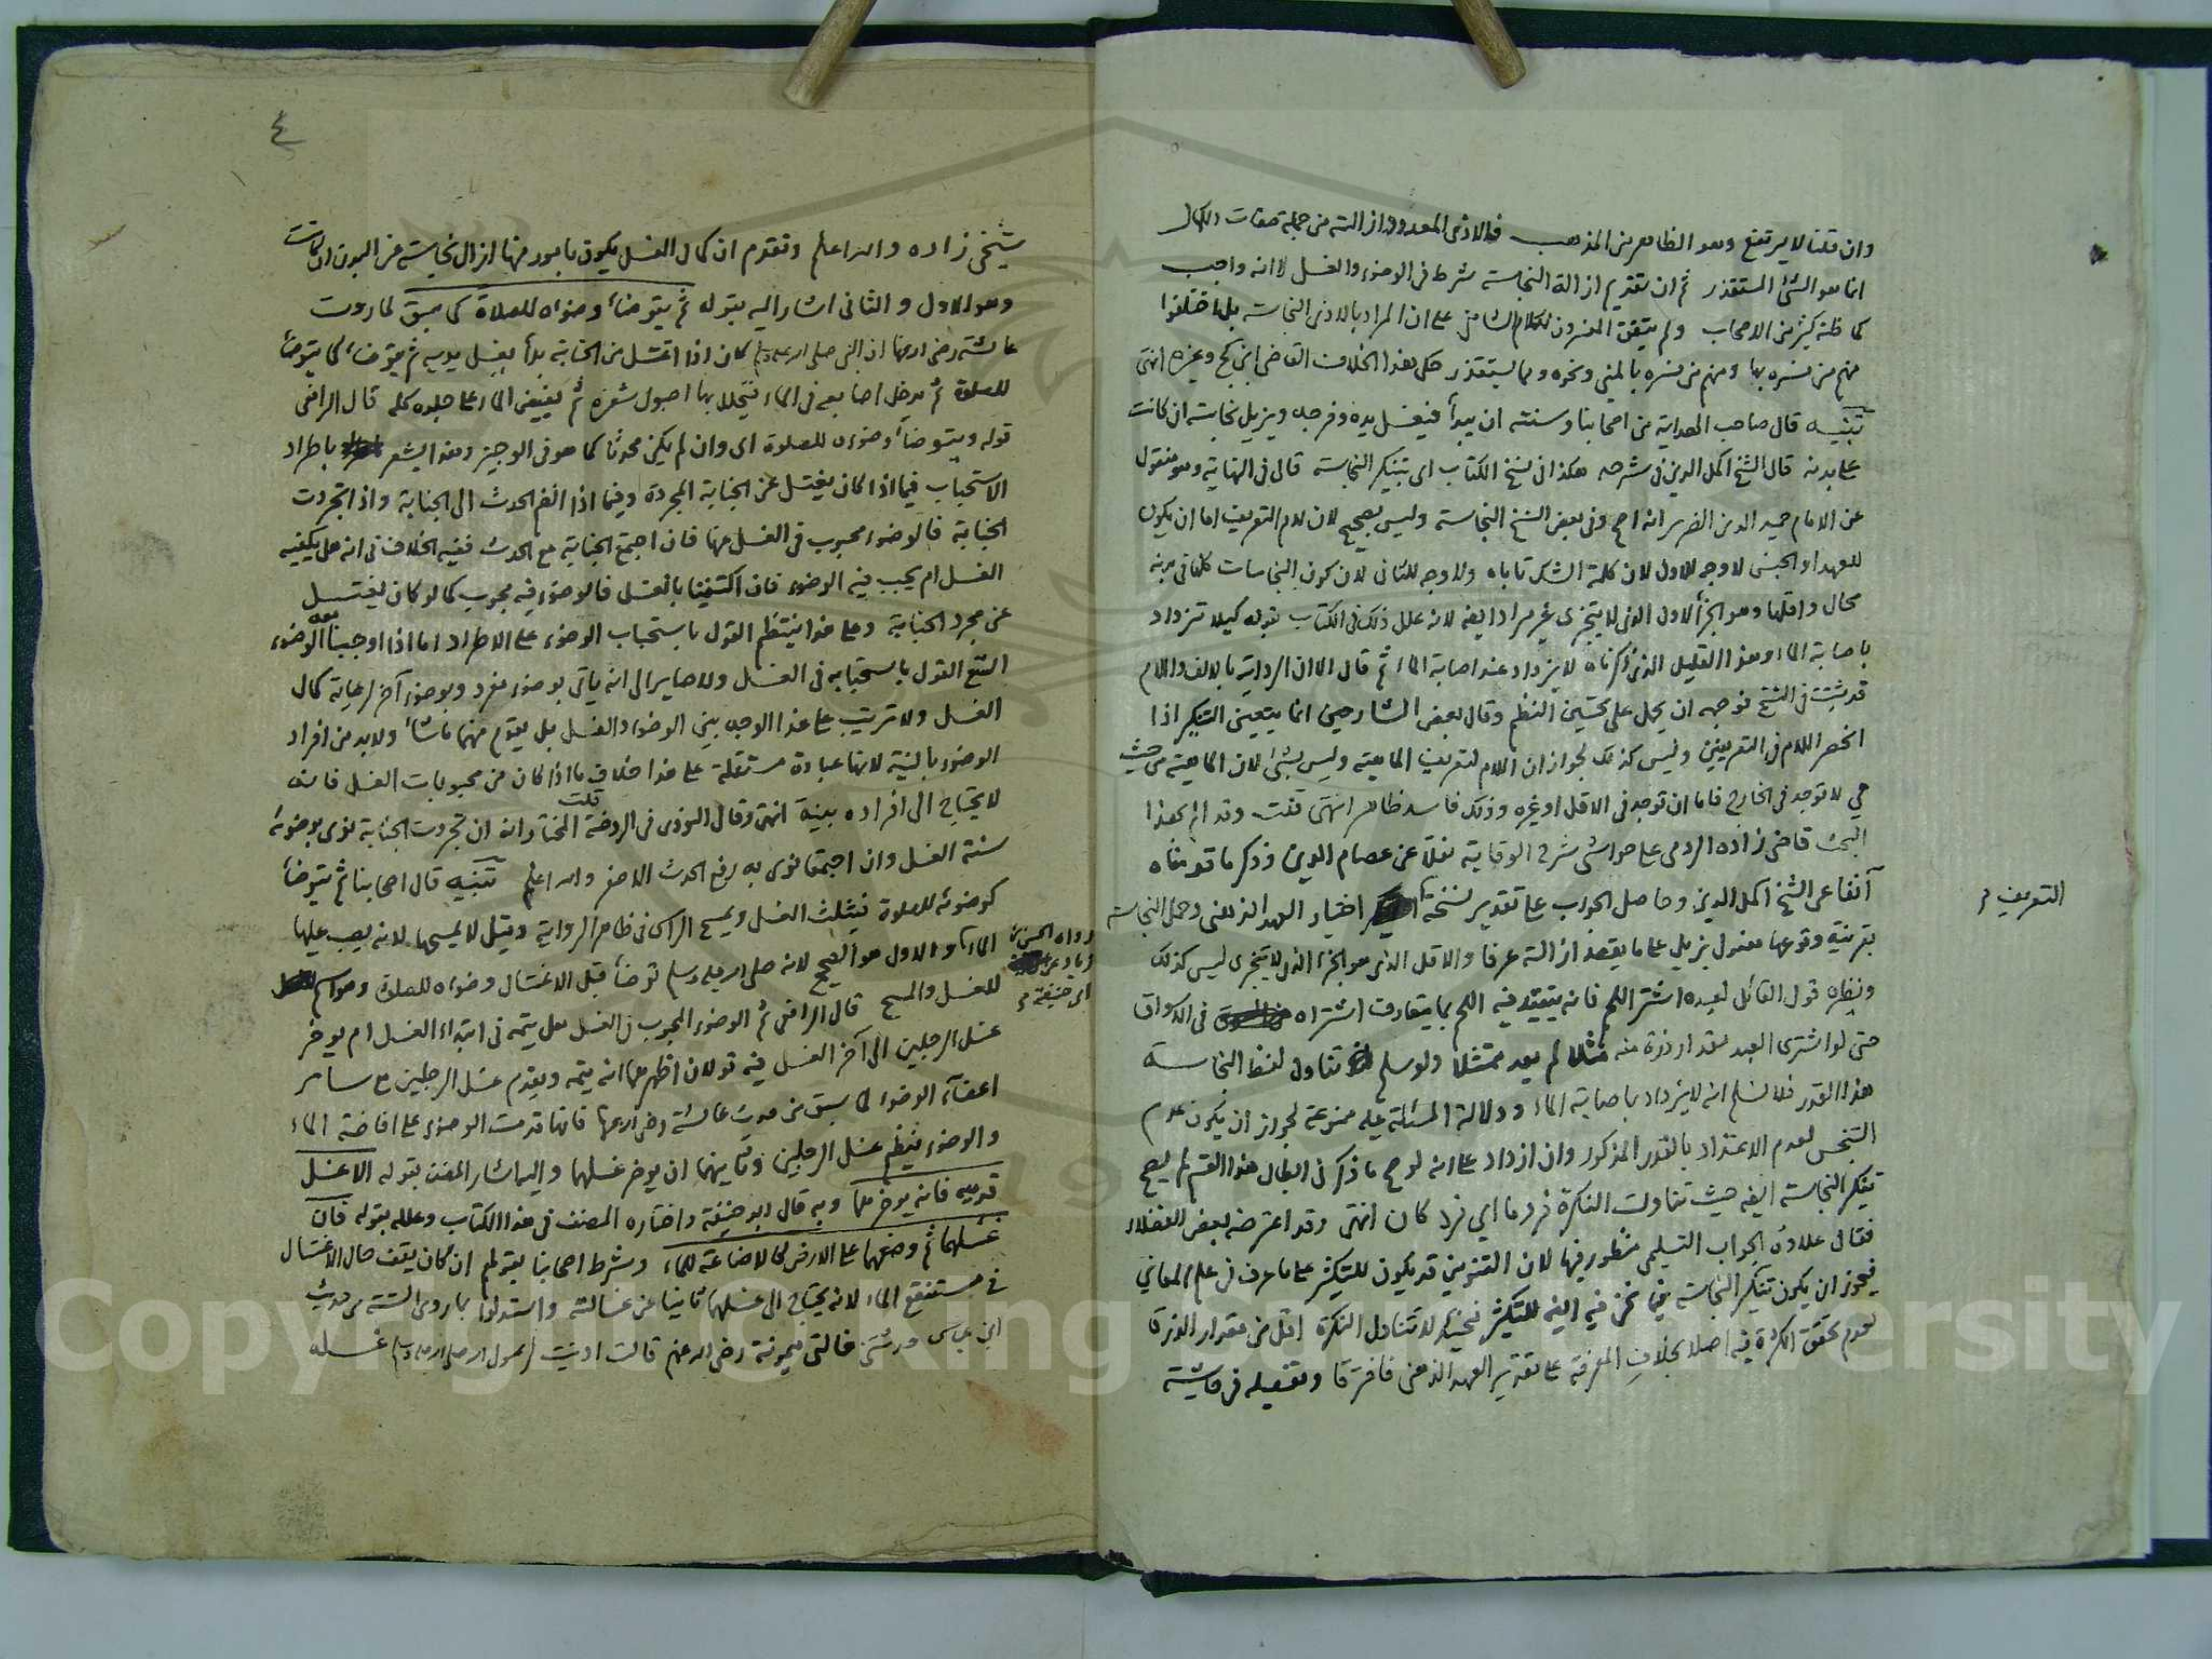 وان قلنا لا يرتفع وهو الظاهر من المذهب فالاذى المعدود ازالته من جملة صفات الكمال
انما هو الشئ المستقذر ثم ان تقديم ازالة النجاسة شرط في الوضوء والغسل لا انه واجب
كما ظنه كثير من الاصحاب ولم يتفق المفسرون لكلام الشافعي على ان المراد بالاذى النجاسة بل اختلفوا
منهم من فسره بها ومنهم من فسره بالمني ونحوه ومما يستقذر حكى هذا الخلاف القاضي ابن كج وغيره انتهى
تنبيه قال صاحب الهداية من اصحابنا وسنته ان يبدأ فيغسل يده وفرجه ويزيل نجاسة ان كانت
على بدنه قال الشيخ اكمل الدين في شرحه هكذا في نسخ الكتاب اى بتنكير النجاسة قال في النهاية وهو منقول
عن الامام حميد الدين الضرير انه اصح وفي بعض النسخ النجاسة وليس بصحيح لان لام التعريف اما ان يكون
للعهد او الجنس لا وجه للاول لان كلمة الشك تاباه ولا وجه للثاني لان كون النجاسات كلها في بدنه
محال واقلها وهو الجزأ الاول الذي لا يتجزى غير مراد ايضه لانه علل ذلك في الكتاب بقوله كيلا تزداد
باصابة الماء وهذا القليل الذي ذكرناه لا يزداد عند اصابة الماء ثم قال الا ان الرواية بالالف واللام
قد ثبتت في النسخ فوجهه ان يحمل على تحسين النظم وقال بعض الشارحين انما يتعين التنكير اذا
انحصر اللام في التعريفين وليس كذلك لجواز ان اللام لتعريف الماهية وليس بشئ لان الماهية من حيث
هي لا توجد في الخارج فاما ان توجد في الاقل او غيره وذلك فاسد ظاهر انتهى قلت وقد الم بهذا
البحث قاضي زاده الرومي على حواشي شرح الوقاية نقلا عن عصام الدين وذكر ما قدمناه
آنفا عن الشيخ اكمل الدين وحاصل الجواب على تقدير نسخة التعريف اختيار العهد الذهني وحمل النجاسة
بقرينة وقوعها مفعول يزيل على ما يقصد ازالته عرفا والاقل الذي هو الجزء الذي لا يتجزى ليس كذلك
ونظيره قول القائل لعبده اشتر اللحم فانه يتقيد فيه اللحم بما يتعارف اشتراه في الاسواق
حتى لو اشترى العبد مقدار ذرة منه مثلا لم يعد ممتثلا ولو سلم تناول لفظ النجاسة
هذا القدر فلا نسلم انه لا يزداد باصابة الماء ودلالة المسئلة عليه ممنوعة لجواز ان يكون عدم
التنجس لعدم الاعتداد بالقدر المذكور وان ازداد على انه لو صح ما ذكر في ابطال هذا القسم لم يصح
تنكير النجاسة ايضه حيث تناولت النكرة فردا ما اي فرد كان انتهى وقد اعترضه بعض الفضلاء
فقال علاوة الجواب التسليمي منظور فيها لان التنوين قد يكون للتكثير على ما عرف في علم المعاني
فيجوز ان يكون تنكير النجاسة فيما نحن فيه ايضه للتكثير فحينئذ لا تتناول النكرة اقل من مقدار الدرهم
لعدم تحقق الكثرة فيه اصلا بخلاف المعرفة على تقدير العهد الذهني فافترقا وتفصيله في حاشية
التعريف
٤
شيخي زاده والله اعلم وتقدم ان كمال الغسل يكون بامور منها ازالة نجاسة عن البدن ان كانت
وهو الاول والثاني اشار اليه بقوله ثم يتوضأ وضوأه للصلاة كما سبق لما روت
عائشة رضى الله عنها ان النبي صلى الله عليه وسلم كان اذا اغتسل من الجنابة بدأ بغسل يديه ثم يتوضأ كما يتوضأ
للصلوة ثم يدخل اصابعه في الماء فيتخلل بها اصول شعره ثم يفيض الماء على جلده كله قال الرافعي
قوله ويتوضأ وضوءه للصلوة اى وان لم يكن محدثا كما هو في الوجيز وهذا يشعر باطراد
الاستحباب فيما اذا كان يغتسل عن الجنابة المجردة وفيما اذا انضم الحدث الى الجنابة واذا تجردت
الجنابة فالوضوء محبوب في الغسل عنها فان اجتمع الجنابة مع الحدث ففيه الخلاف في انه هل يكفيه
الغسل ام يجب فيه الوضوء فان اكتفينا بالغسل فالوضوء فيه محبوب كما لو كان يغتسل
عن مجرد الجنابة وعلى هذا ينتظم القول باستحباب الوضوء على الاطراد اما اذا اوجبنا معه الوضوء
امتنع القول باستحبابه في الغسل ولا صاير الى انه ياتى بوضوء مفرد وبوضوء آخر لرعاية كمال
الغسل ولا ترتيب على هذا الوجه بين الوضوء والغسل بل يقدم منهما ما شاء ولا بد من افراد
الوضوء بالنية لانها عبادة مستقلة على هذا خلاف ما اذا كان من محبوبات الغسل فانه
لا يحتاج الى افراده بنية انتهى وقال النووى في الروضة قلت المختار انه ان تجردت الجنابة نوى بوضوئه
سنة الغسل وان اجتمعا نوى به رفع الحدث الاصغر والله اعلم تنبيه قال اصحابنا ثم يتوضأ
كوضوئه للصلوة فيثلث الغسل ويمسح الراس في ظاهر الرواية وقيل لا يمسحها لانه يصب عليها
الماء والاول هو الصحيح لانه صلى الله عليه وسلم توضأ قبل الاغتسال وضوأه للصلاة وهو اسم
للغسل والمسح قال الرافعي ثم الوضوء المحبوب في الغسل هل يتمه في ابتداء الغسل ام يؤخر
غسل الرجلين الى آخر الغسل فيه قولان اظهرهما انه يتمه ويقدم غسل الرجلين مع سائر
اعضآء الوضوء لما سبق من حديث عائشة رضى الله عنها فانها قدمت الوضوء على افاضة الماء
والوضوء ينتظم غسل الرجلين وثانيهما ان يؤخر غسلهما واليه اشار المصنف بقوله الا غسل
قدميه فانه يؤخرهما وبه قال ابو حنيفة واختاره المصنف في هذا الكتاب وعلله بقوله فان
غسلهما ثم وضعهما على الارض كالاضاعة للماء وشرط اصحابنا بقولهم ان كان يقف حال الاغتسال
في مستنقع الماء لانه يحتاج الى غسلهما ثانيا عن غسالته واستدلوا بما روى الستة من حديث
ابن عباس حدثتني خالتى ميمونة رضى الله عنهم قالت ادنيت لرسول الله صلى الله عليه وسلم غسله
رواه الحسن بن
زياد عن
ابي حنيفة
Copyright © King Saud University